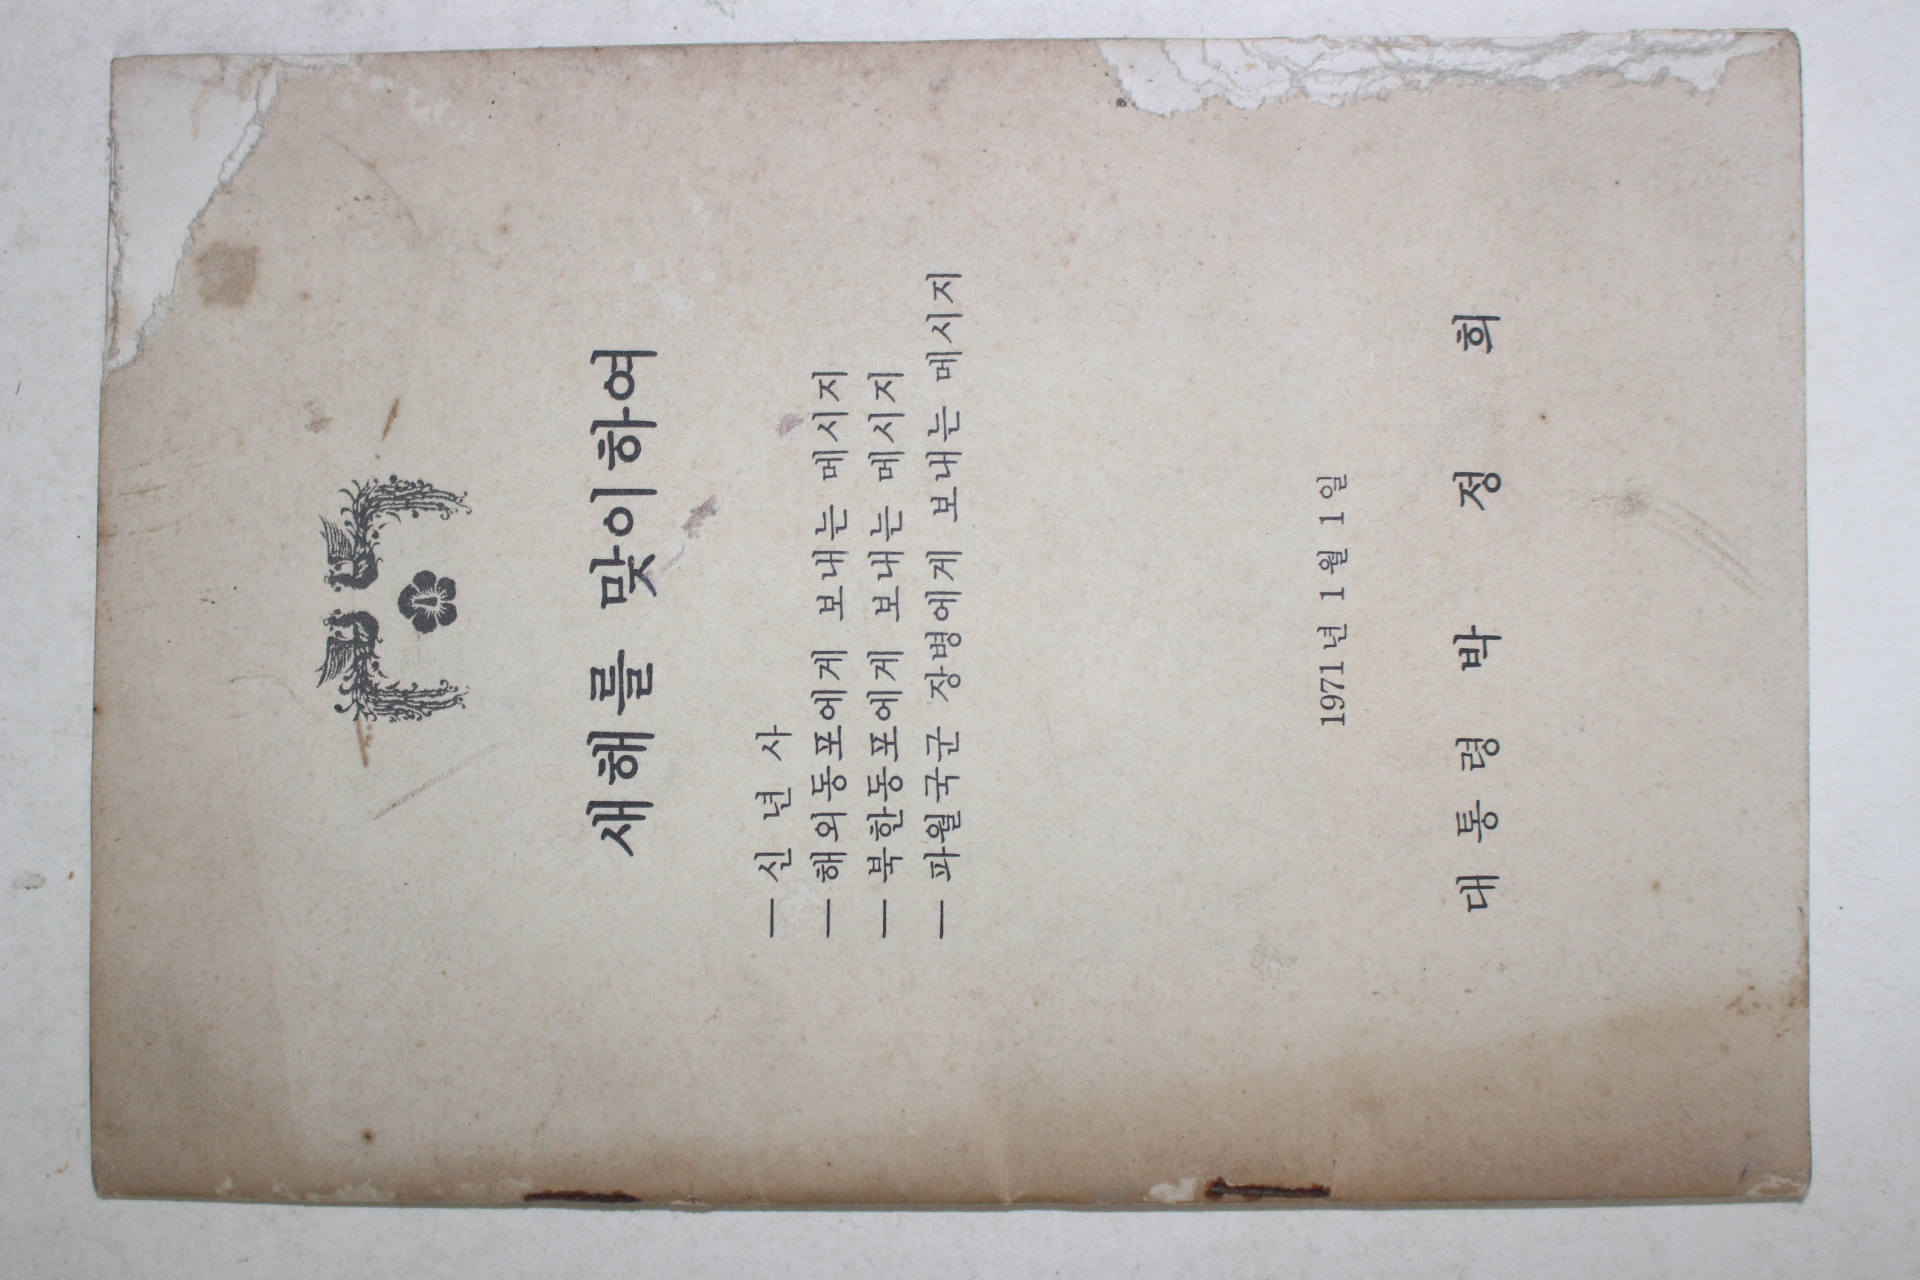 새해를 맞이하여
— 신 년 사
— 해외동포에게 보내는 메시지
— 북한동포에게 보내는 메시지
— 파월국군 장병에게 보내는 메시지
1971년 1월 1일
대 통 령 박 정 희